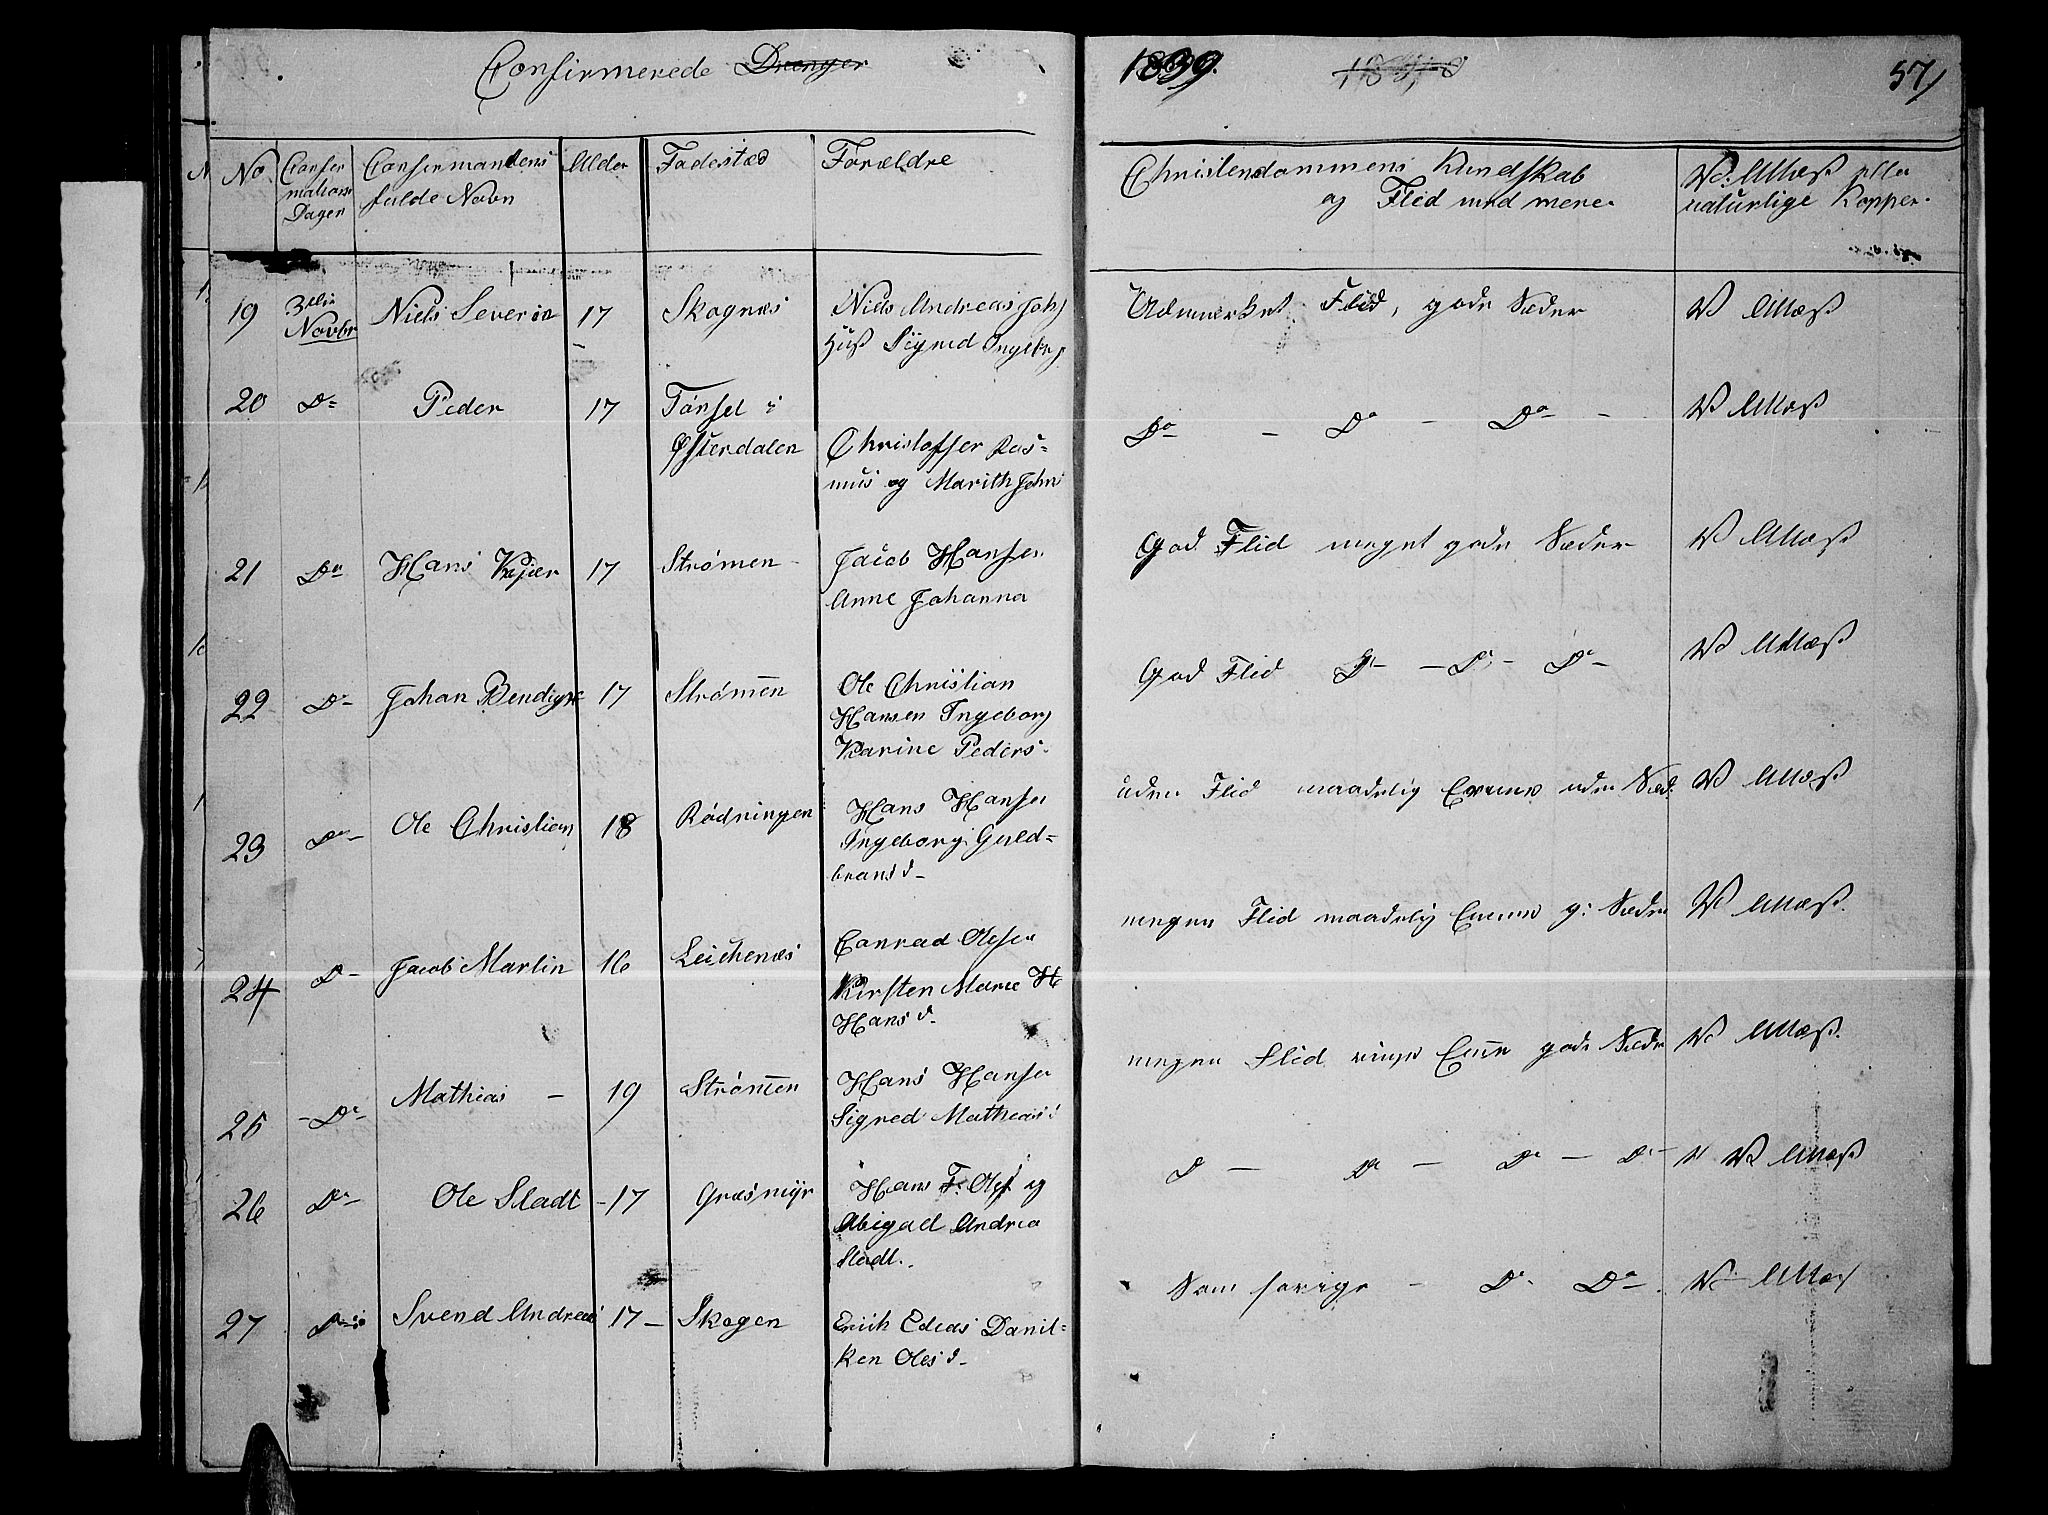 Confirmerede Drenger
1839.
57
No
Confirmations Dagen
Confirmandens fulde Navn
Alder
Fødestæd
Forældre
Christendommens Kundskab
og Flid med mere
V: Mæss eller
naturlige Kopper.
19 3die Novbr Niels Severin 17 Skognæs Niels Andreas Joh
Signed Ingebrg
Udmærket Flid, gode Sæder V Mæss
20 Do Peder 17 Tønset i
Østerdalen Christoffer Ras=
mus og Marith Johns
Do - Do - Do - V Mæss
21 Do Hans Kjær 17 Strømen Jacob Hansen
Anne Johanna
God Flid meget gode Sæder V Mæss
22 Do Johan Bendigt 17 Strømen Ole Christian
Hansen Ingeborg
Karine Peders
God Flid D- -D- Do- V Mæss
23 Do Ole Christian 18 Rødningen Hans Hansen
Ingeborg Guld=
brans d-
uden Flid maadelig Evene uden Sæd. V Mæss
24 D- Jacob Martin 16 Leichenæs Conrad Olesen
Kirsten Marie H
Hans d-
megen Flid maadelig Evene g: Sæder V Mæss.
25 Do Mathias - 19 Strømen Hans Hansen
Signed Mathias d
megen Flid ringe Evne gode Sæder V Mæss.
26 Do Ole Stadt 17 Græsmyr Hans F. Oles og
Abigael Andrea
Stadt.
D - Do - Do - Do V Mæss
27 Do Svend Andreas 17 Skogen Erich Edias Danil=
ken Oles d-
Som forige - Do Do. V Mæss